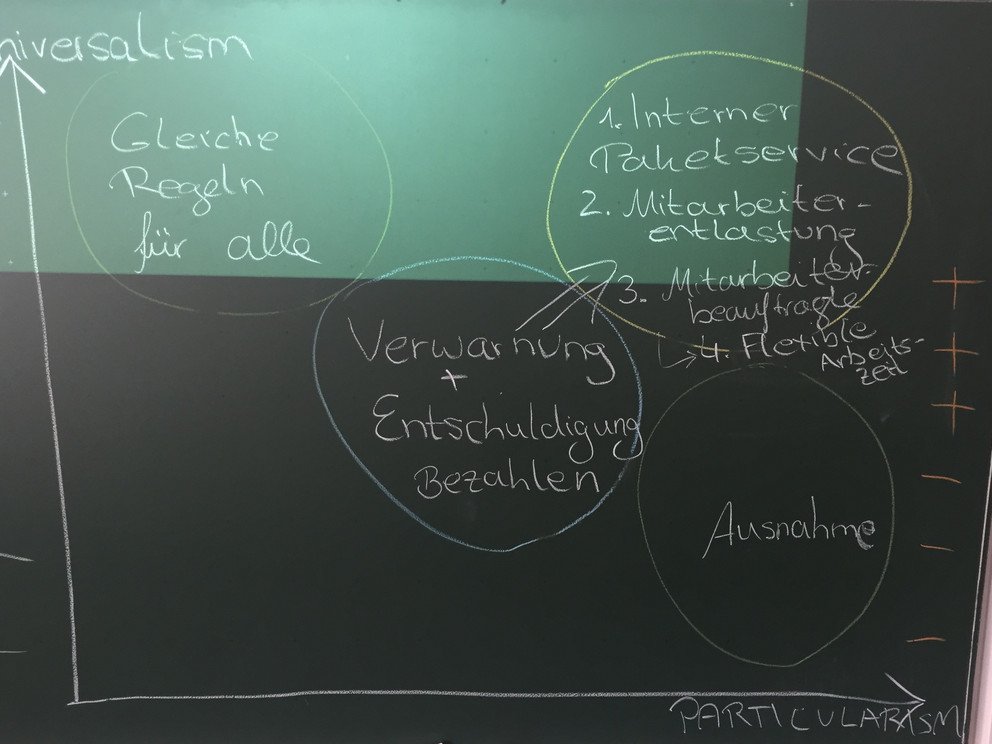 niversalism
Gleiche
Regeln
für alle
1. Interner
Paketservice
2. Mitarbeiter-
entlastung
3. Mitarbeiter-
beauftragte
4. Flexible
Arbeits-
zeit
Verwarnung
+
Entschuldigung
Bezahlen
Ausnahme
+
+
+
-
-
-
PARTICULARISM